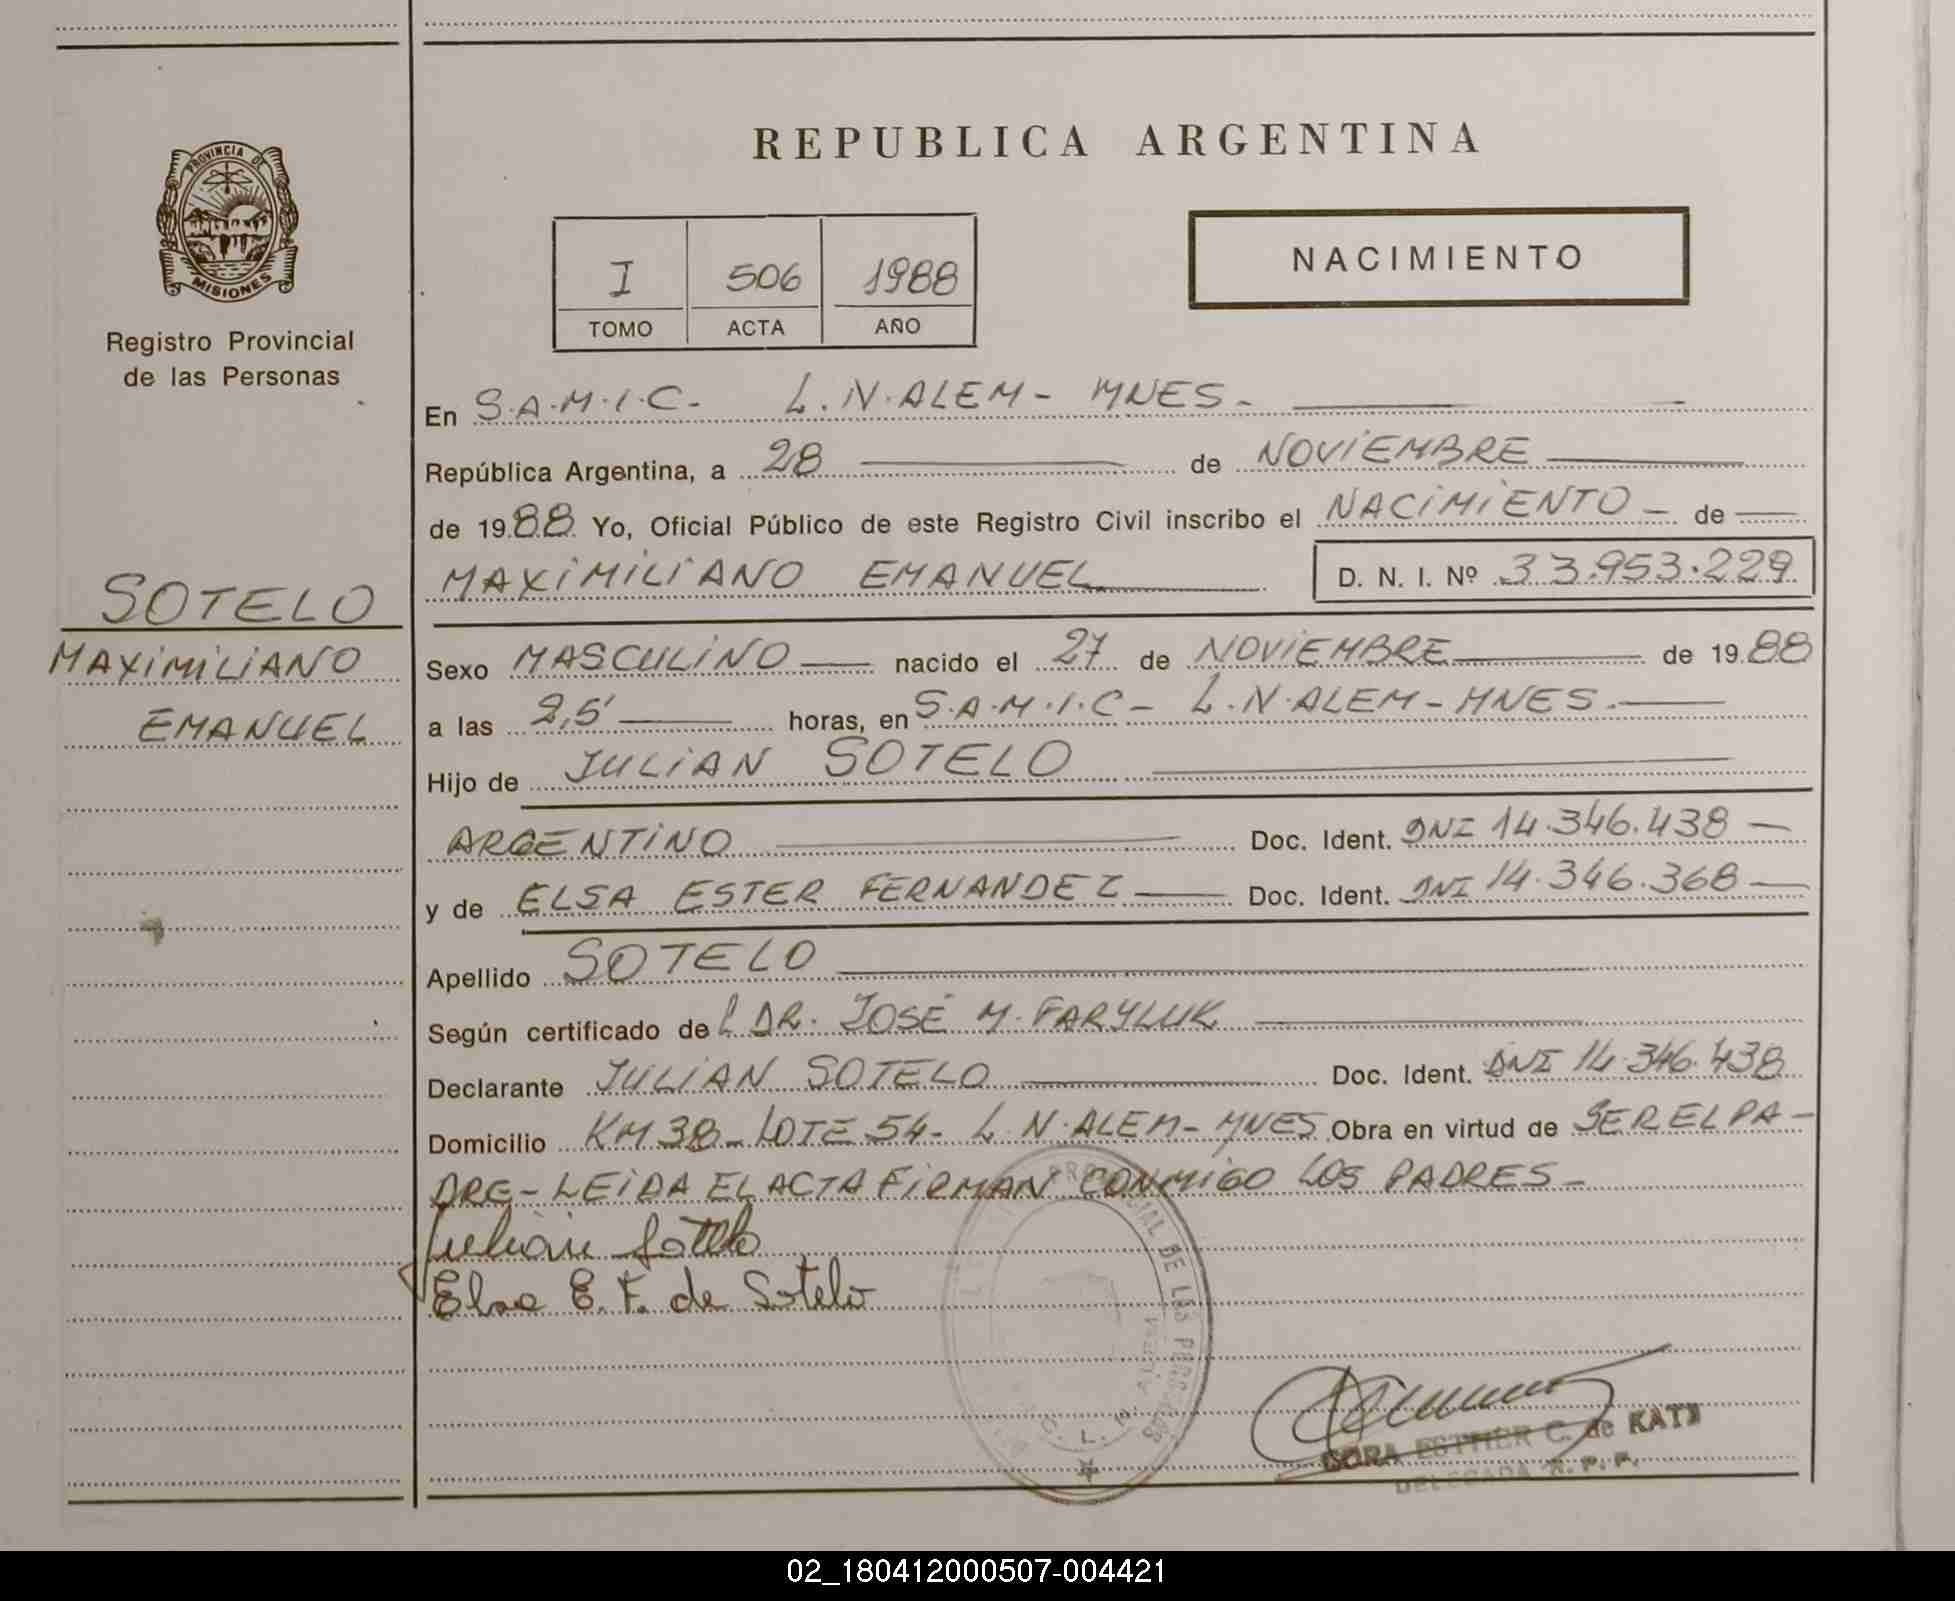 PROVINCIA DE
MISIONES
Registro Provincial
de las Personas
SOTELO
MAXIMILIANO
EMANUEL
REPUBLICA ARGENTINA
I 506 1988
TOMO ACTA AÑO
NACIMIENTO
En S.A.M.I.C. L.N.ALEM - MNES.
República Argentina, a 28 de NOVIEMBRE
de 1988 Yo, Oficial Público de este Registro Civil inscribo el NACIMIENTO - de
MAXIMILIANO EMANUEL D. N. I. Nº 33.953.229
Sexo MASCULINO nacido el 27 de NOVIEMBRE de 1988
a las 2,5' horas, en S.A.M.I.C - L.N.ALEM - MNES.
Hijo de JULIAN SOTELO
ARGENTINO Doc. Ident. DNI 14.346.438 -
y de ELSA ESTER FERNANDEZ Doc. Ident. DNI 14.346.368 -
Apellido SOTELO
Según certificado del DR. JOSÉ M. FARYLUK
Declarante JULIAN SOTELO Doc. Ident. DNI 14.346.438
Domicilio KM 38 - LOTE 54 - L.N.ALEM - MNES Obra en virtud de SER EL PA-
DRE - LEIDA EL ACTA FIRMAN CONMIGO LOS PADRES -
Julian Sotelo
Elsa E. F. de Sotelo
PROVINCIAL DE LAS PERSONAS
L. N. ALEM
ESTHER C. de KATZ
DELEGADA R. P. P.
02_180412000507-004421